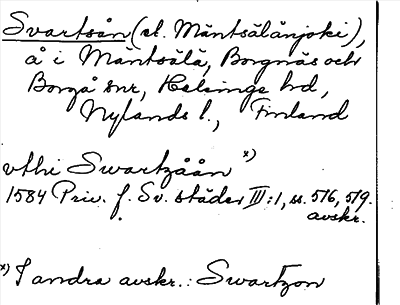 Svartsån (el. Mäntsälänjoki),
å i Mäntsälä, Borgnäs och
Borgå snr, Helsinge hd,
Nylands l., Finland
vthi Swartzåån x)
1584 Priv. f. Sv. städer III:1, ss. 516, 519.
avskr.
x) I andra avskr.: Swartzon